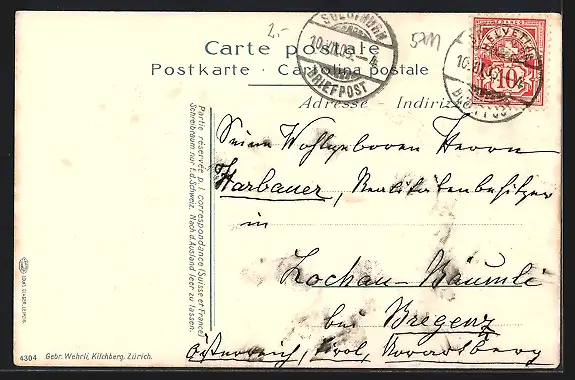 2.-
57M
SOLOTHURN
10.VII.05.-4
BRIEFPOST
HELVETIA
FRANCO
10
Carte postale
Postkarte · Cartolina postale
Adresse - Indirizzo
Partie réservée p. l. correspondance (Suisse et France)
Schreibraum nur f. d. Schweiz. Nach d. Ausland leer zu lassen.
Seine Wohlgeboren Herrn
Harbauer, Realitätenbesitzer
in
Lochau-Bäumle
bei Bregenz
Österreich, Tirol, Vorarlberg
4304 Gebr. Wehrli, Kilchberg, Zürich.